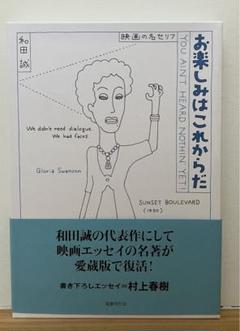 お楽しみはこれからだ
YOU AIN'T HEARD NOTHIN' YET!
映画の名セリフ
和田誠
We didn't need dialogue.
We had faces
Gloria Swanson
SUNSET BOULEVARD
(1950)
和田誠の代表作にして
映画エッセイの名著が
愛蔵版で復活!
書き下ろしエッセイ=村上春樹